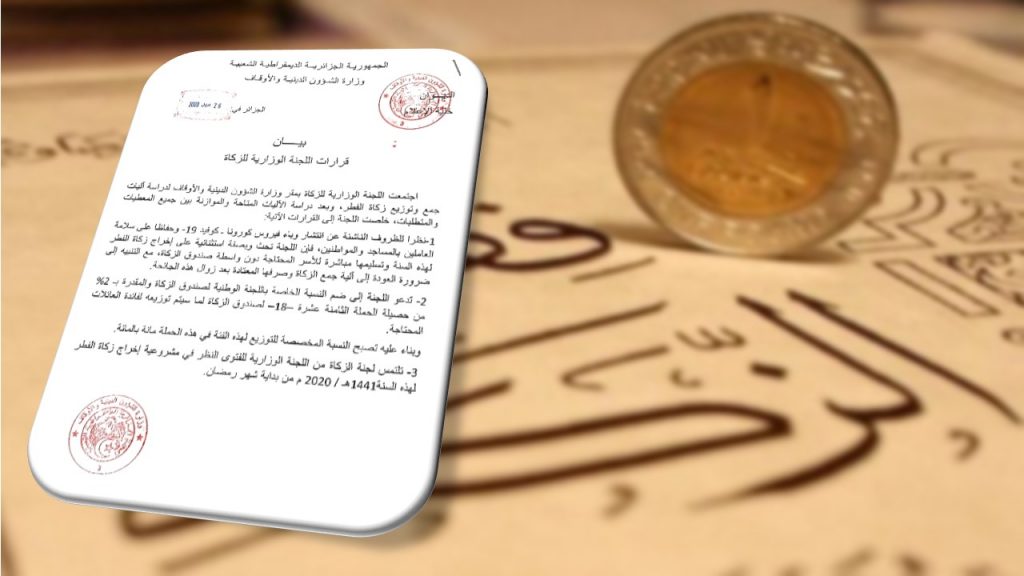 الجمهورية الجزائرية الديمقراطية الشعبية
وزارة الشؤون الدينية والأوقاف
خلية الإعلام
الجزائر في:
بيــــان
قرارات اللجنة الوزارية للزكاة
اجتمعت اللجنة الوزارية للزكاة بمقر وزارة الشؤون الدينية والأوقاف لدراسة آليات
جمع وتوزيع زكاة الفطر، وبعد دراسة الآليات المتاحة والموازنة بين جميع المعطيات
والمتطلبات، خلصت اللجنة إلى القرارات الآتية:
1-نظرا للظروف الناشئة عن انتشار وباء فيروس كورونا - كوفيد 19- وحفاظا على سلامة
العاملين بالمساجد والمواطنين، فإن اللجنة تحث وبصفة استثنائية على إخراج زكاة الفطر
لهذه السنة وتسليمها مباشرة للأسر المحتاجة دون واسطة صندوق الزكاة، مع التنبيه إلى
ضرورة العودة إلى آلية جمع الزكاة وصرفها المعتادة بعد زوال هذه الجائحة.
2- تدعو اللجنة إلى ضم النسبة الخاصة باللجنة الوطنية لصندوق الزكاة والمقدرة بـ 2%
من حصيلة الحملة الثامنة عشرة –18– لصندوق الزكاة لما سيتم توزيعه لفائدة العائلات
المحتاجة.
وبناء عليه تصبح النسبة المخصصة للتوزيع لهذه الفئة في هذه الحملة مائة بالمائة.
3- تلتمس لجنة الزكاة من اللجنة الوزارية للفتوى النظر في مشروعية إخراج زكاة الفطر
لهذه السنة1441هـ / 2020 م من بداية شهر رمضان.
الزكـ